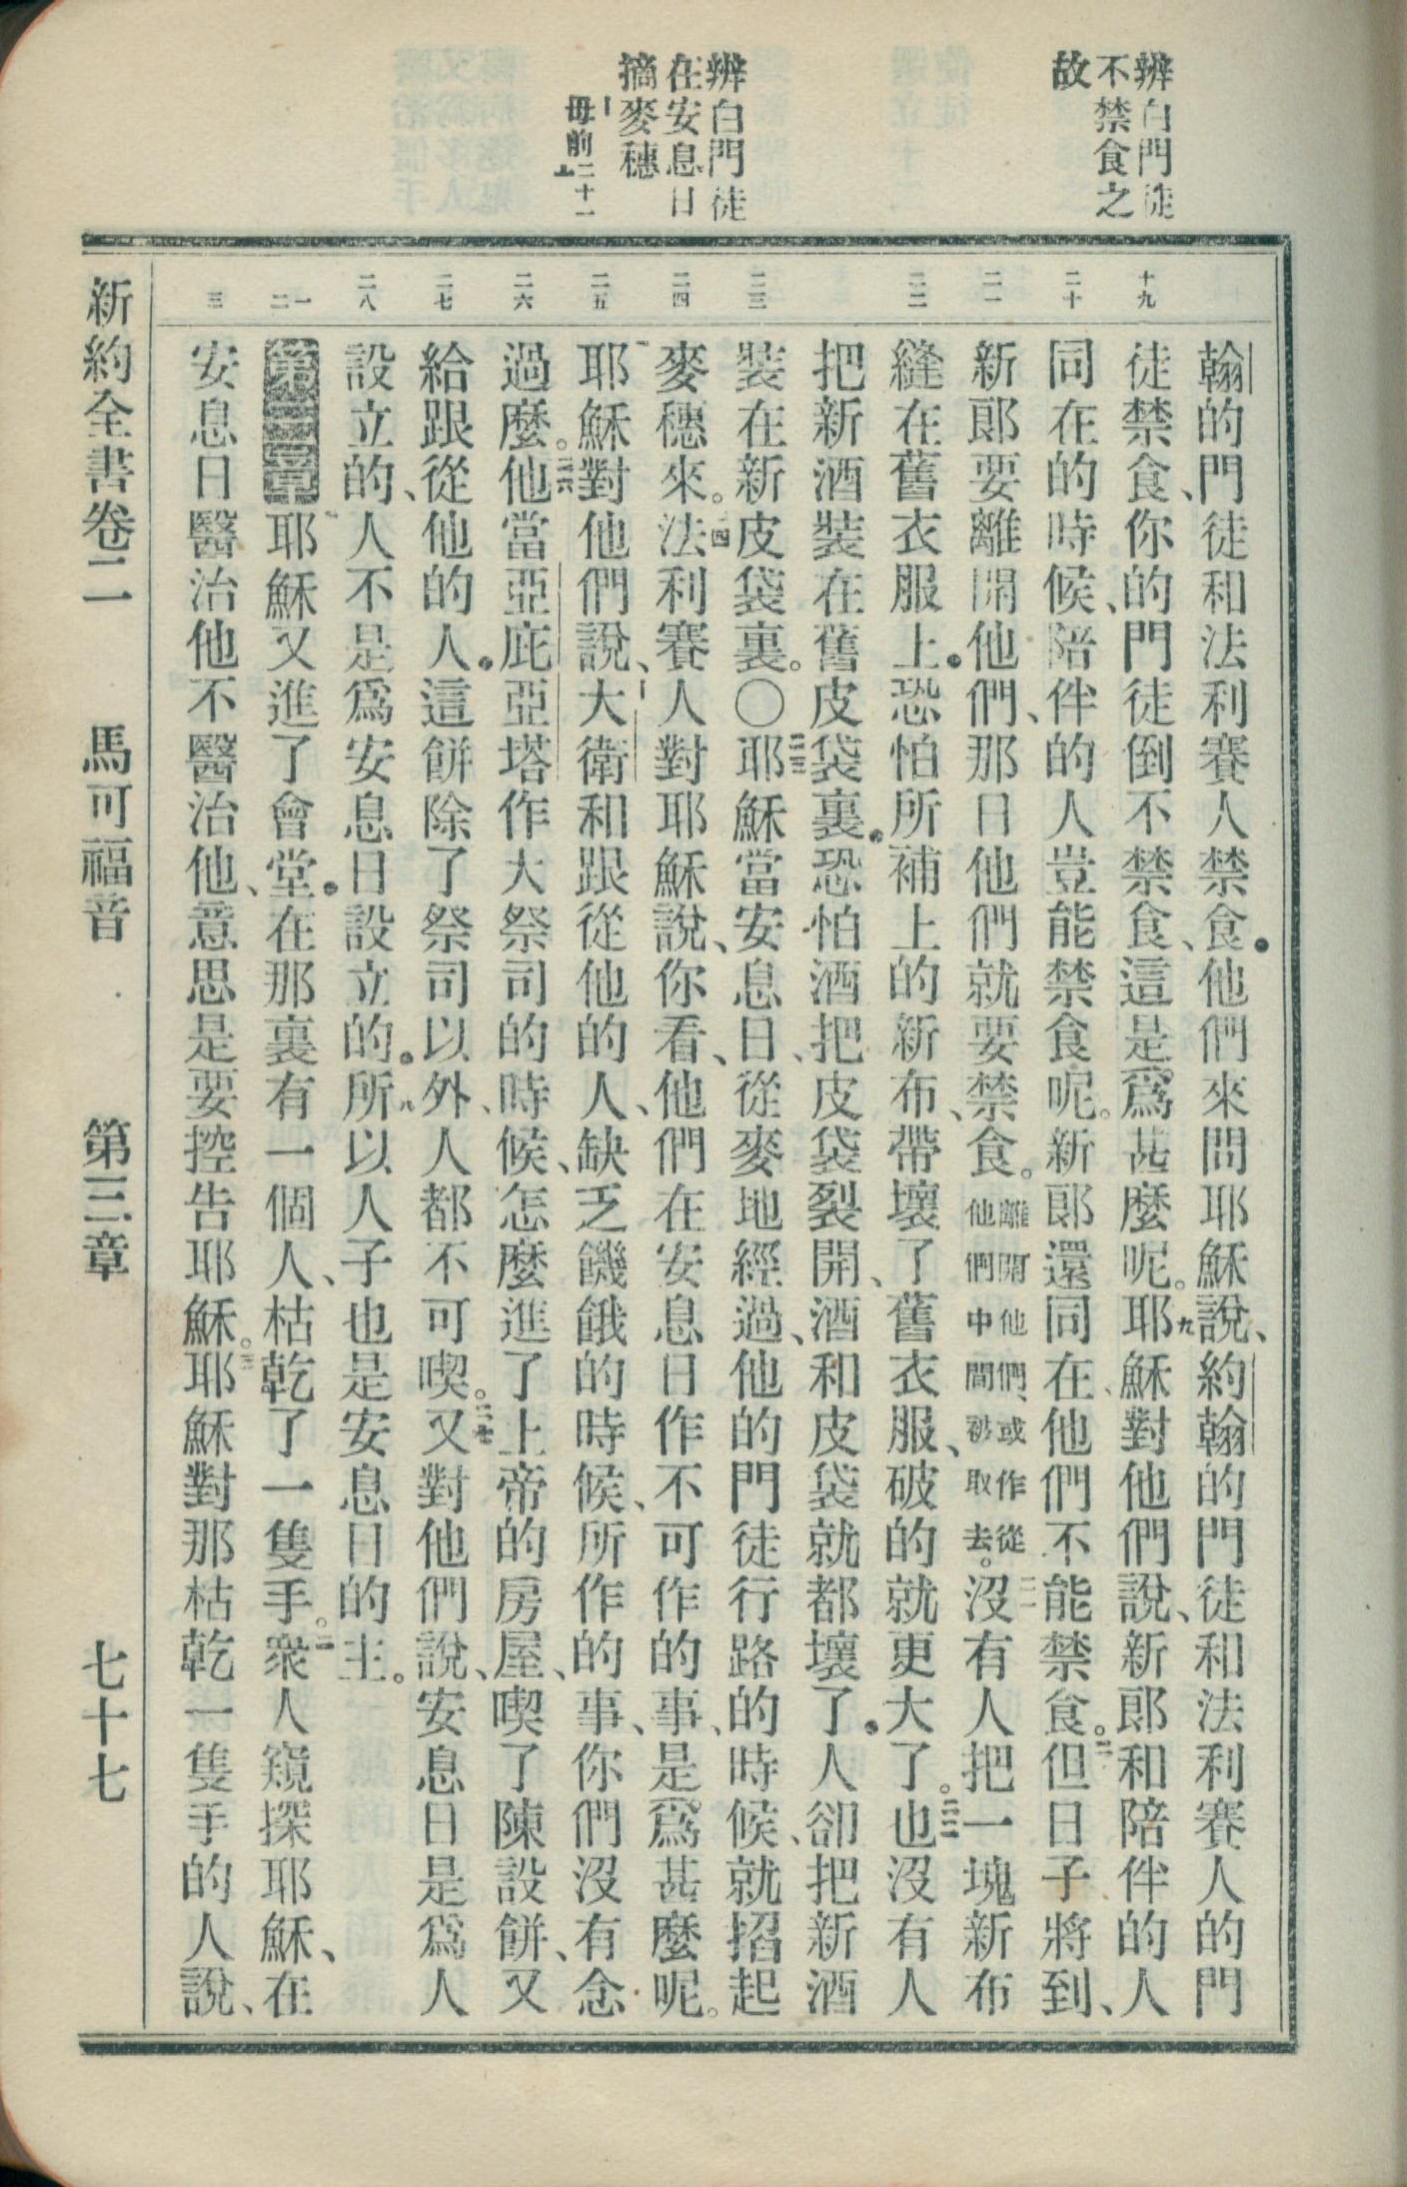 辨白門徒
不禁食之
故
辨白門徒
在安息日
摘麥穗
母前二十一
十九
二十
二一
二二
二三
二四
二五
二六
二七
二八
一
二
三
翰的門徒和法利賽人禁食．他們來問耶穌說、約翰的門徒和法利賽人的門
徒禁食、你的門徒倒不禁食、這是爲甚麼呢。十九耶穌對他們說、新郞和陪伴的人
同在的時候、陪伴的人豈能禁食呢。新郞還同在、他們不能禁食。二十但日子將到、
新郞要離開他們、那日他們就要禁食。離開他們、或作從他們中間被取去。二一沒有人把一塊新布
縫在舊衣服上．恐怕所補上的新布、帶壞了舊衣服、破的就更大了。二二也沒有人
把新酒裝在舊皮袋裏．恐怕酒把皮袋裂開、酒和皮袋就都壞了．人卻把新酒
裝在新皮袋裏。〇二三耶穌當安息日、從麥地經過、他的門徒行路的時候、就搯起
麥穗來。二四法利賽人對耶穌說、你看、他們在安息日作不可作的事、是爲甚麼呢。
耶穌對他們說、大衛和跟從他的人、缺乏饑餓的時候、所作的事、你們沒有念
過麼。二六他當亞庇亞塔作大祭司的時候、怎麼進了上帝的房屋、喫了陳設餅、又
給跟從他的人．這餅除了祭司以外、人都不可喫。二七又對他們說、安息日是爲人
設立的、人不是爲安息日設立的．二八所以人子也是安息日的主。
第三章耶穌又進了會堂．在那裏有一個人、枯乾了一隻手。二衆人窺探耶穌、在
安息日醫治他不醫治他、意思是要控告耶穌。三耶穌對那枯乾一隻手的人說、
新約全書卷二 馬可福音 第三章 七十七